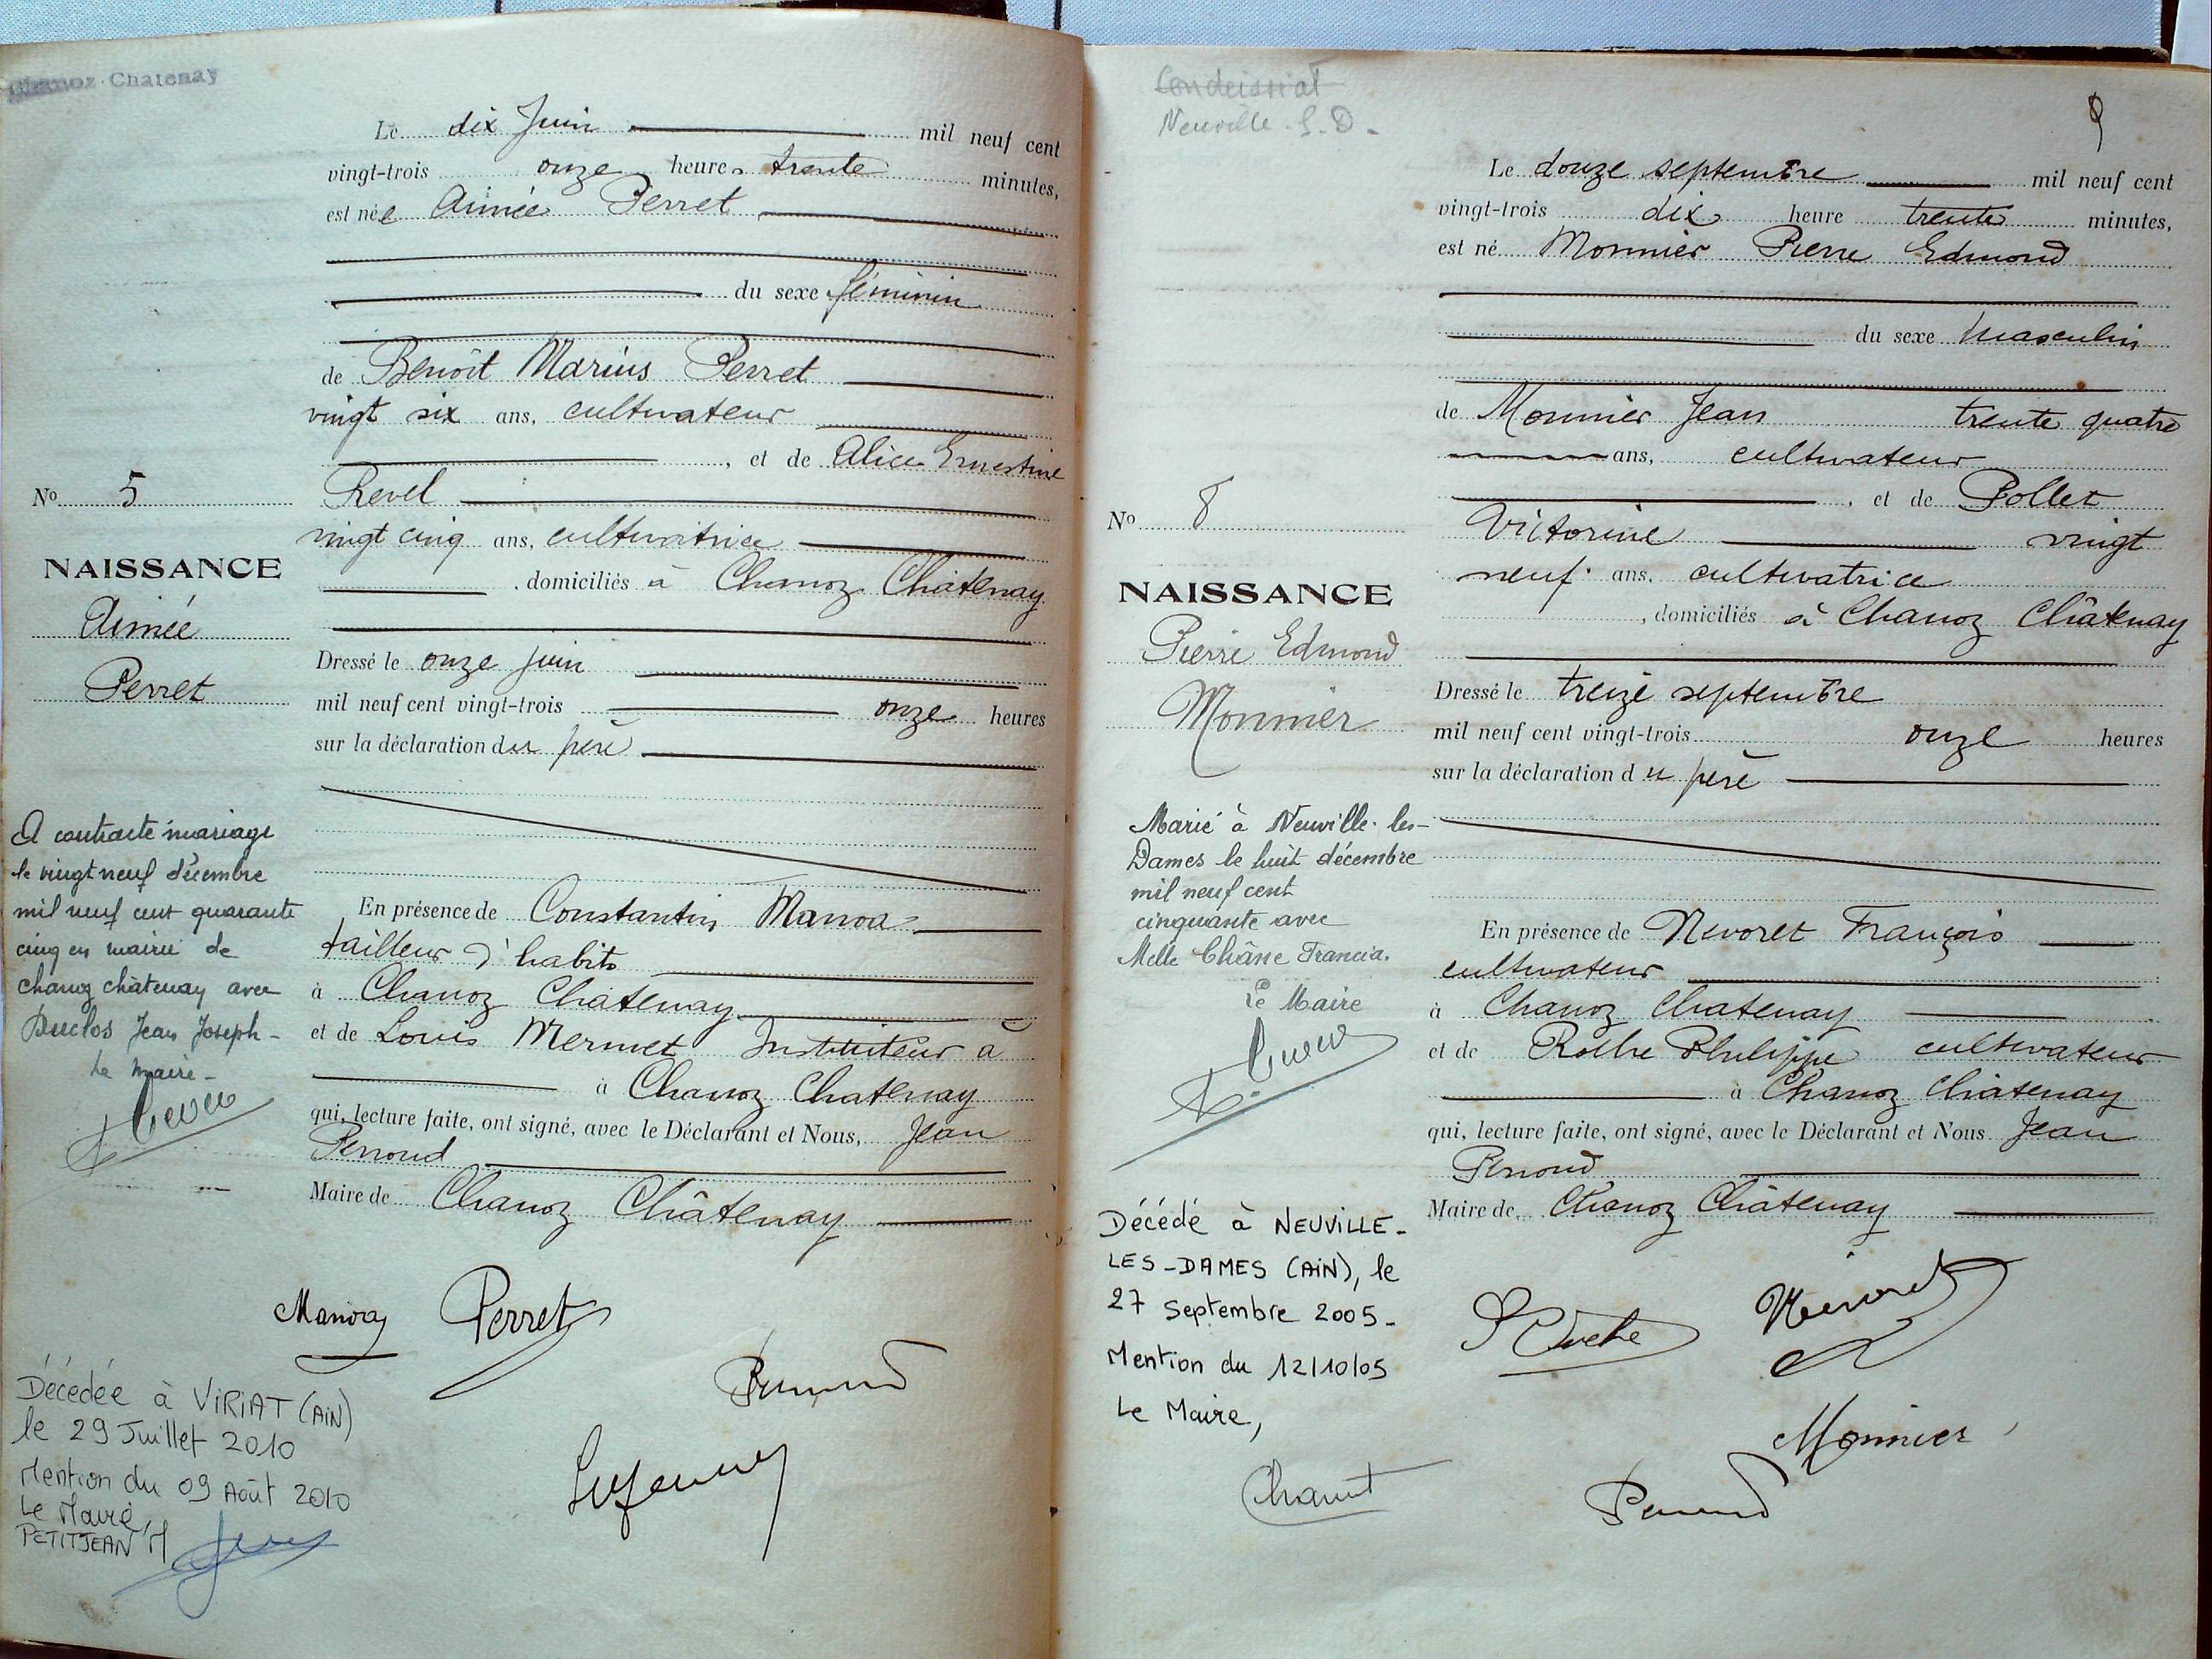 Chanoz-Chatenay
Le dix Juin mil neuf cent
vingt-trois onze heures trente minutes,
est née Aimée Perret
du sexe féminin
de Benoît Marius Perret
vingt six ans, cultivateur
, et de Alice Ernestine
Revel
vingt cinq ans, cultivatrice
, domiciliés à Chanoz Châtenay
No 5
NAISSANCE
Aimée
Perret
Dressé le onze juin
mil neuf cent vingt-trois onze heures
sur la déclaration du père
A contracté mariage
le vingt neuf décembre
mil neuf cent quarante
cinq en mairie de
chanoz châtenay avec
Duclos Jean Joseph-
Le Maire-
En présence de Constantin
tailleur d'habits
à Chanoz Châtenay
et de Louis Mermet Instituteur à
à Chanoz Chatenay
qui, lecture faite, ont signé, avec le Déclarant et Nous, Jean
Perroud
Maire de Chanoz Châtenay
Perret
Décédée à VIRIAT (AIN)
le 29 Juillet 2010
Mention du 09 Août 2010
Le Maire,
PETITJEAN M
Condeissiat
Neuville-S-D-
9
Le douze septembre mil neuf cent
vingt-trois dix heure trente minutes,
est né Monnier Pierre Edmond
du sexe masculin
de Monnier Jean trente quatre
ans, cultivateur
, et de Pollet
Victorine vingt
neuf ans, cultivatrice
, domiciliés à Chanoz Châtenay
No 8
NAISSANCE
Pierre Edmond
Monnier
Dressé le treize septembre
mil neuf cent vingt-trois onze heures
sur la déclaration du père
Marié à Neuville-les-
Dames le huit décembre
mil neuf cent
cinquante avec
Melle Châne Francia.
Le Maire
En présence de Nevoret François
cultivateur
à Chanoz Chatenay
et de Philippe cultivateur
à Chanoz Châtenay
qui, lecture faite, ont signé, avec le Déclarant et Nous Jean
Perroud
Maire de Chanoz Châtenay
Décédé à NEUVILLE-
LES-DAMES (AIN), le
27 septembre 2005-
Mention du 12/10/05
Le Maire,
Monnier